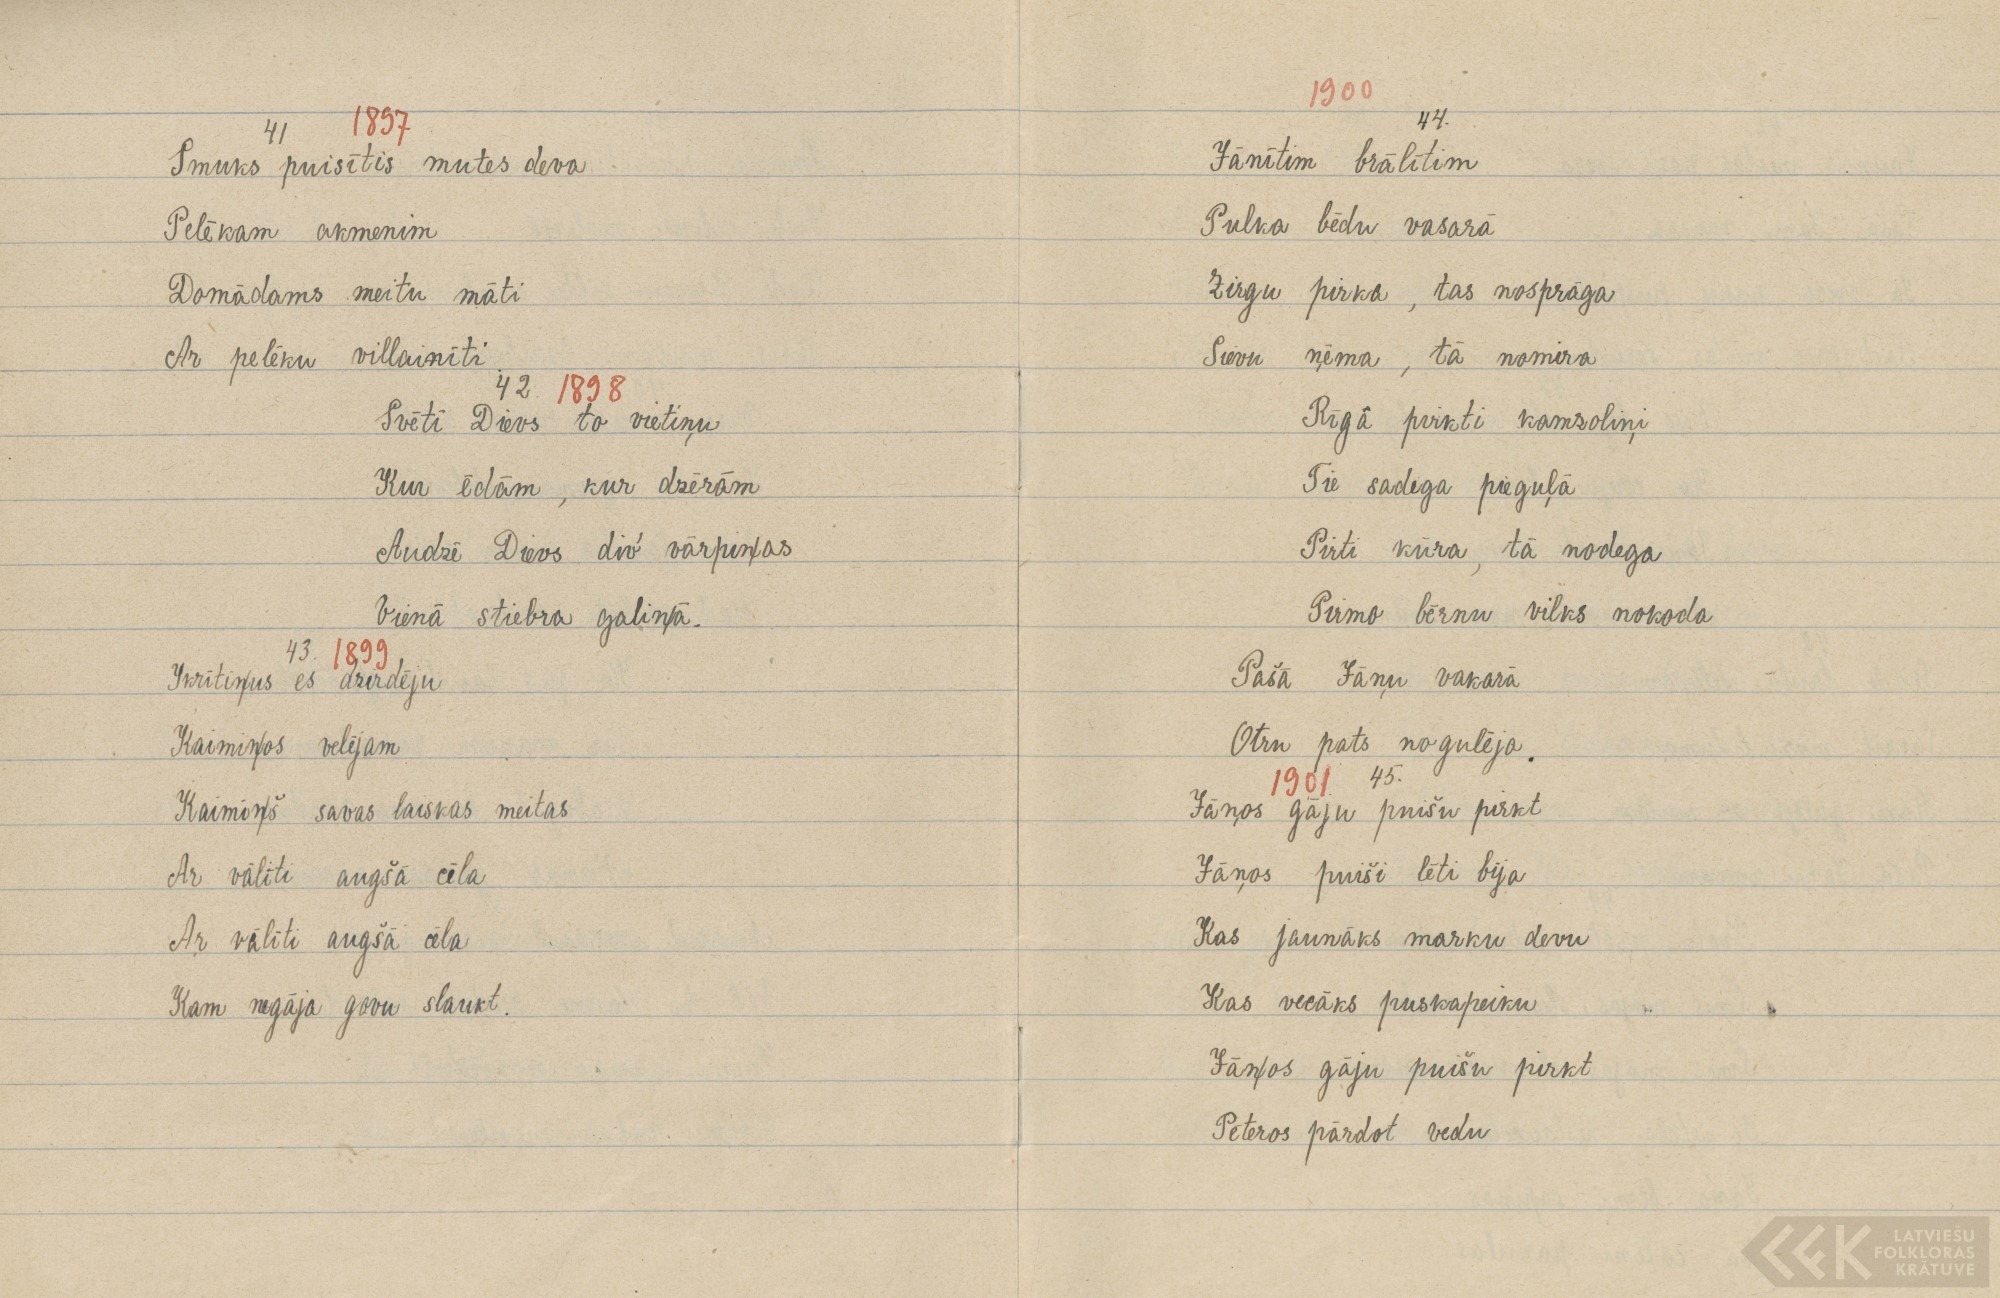 41 1897
Smuks puisītis mutes deva
Pelēkam akmenim
Domādams meitu māti
Ar pelēku villainīti.
42. 1898
Svētī Dievs to vietiņu
Kur ēdām, kur dzērām
Audzē Dievs div' vārpiņas
Vienā stiebra galiņā.
43. 1899
es dzirdēju
Kaimiņos velējam
Kaimiņš savas laiskas meitas
Ar vālīti augšā cēla
Ar vālīti augšā cēla
Kam negāja govu slaukt.
1900
44.
Jānītim brālītim
Pulka bēdu vasarā
Zirgu pirka, tas nosprāga
Sievu ņēma, tā nomira
Rīgā pirkti kamzoliņi
Tie sadega pieguļā
Pirti kūra, tā nodega
Pirmo bērnu vilks nokoda
Pašā Jāņu vakarā
Otru pats nogulēja.
1901 45.
Jāņos gāju puišu pirkt
Jāņos puiši lēti bija
Kas jaunāks marku devu
Kas vecāks puskapeiku
Jāņos gāju puišu pirkt
Pēteros pārdot vedu
LATVIEŠU
FOLKLORAS
KRĀTUVE